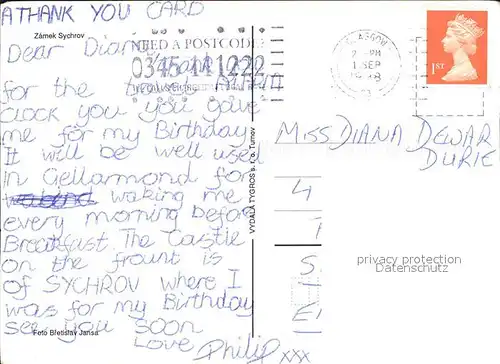 A THANK YOU CARD
Zámek Sychrov
Dear Diana
NEED A POSTCODE?
Thank you
0345 111222
for the
clock you you gave
me for my Birthday
It will be well used
in Gellarmond for
waking me
every morning before
Breakfast. The Castle
on the frount is
of SYCHROV where I
was for my Birthday
see you soon
Love
Philip xxx
Foto Břetislav Jansa
VYDALA TYGROS s.r.o. Turnov
GLASGOW
PM
1 SEP
1ST
MISS DIANA DEWAR
DURIE
4
privacy protection
Datenschutz